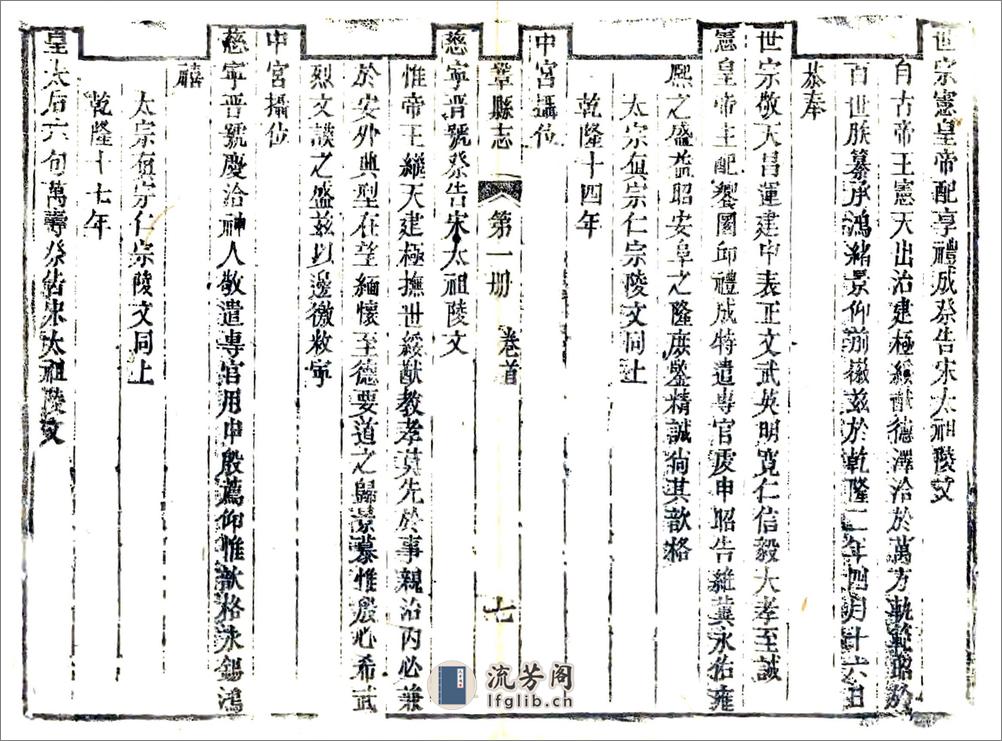 世宗憲皇帝配享禮成祭告宋太祖陵文
自古帝王憲天出治建極綏猷德澤洽於萬方軌範昭於
百世朕纂承鴻緒景仰前徽茲於乾隆二年四月十六日
恭奉
世宗敬天昌運建中表正文武英明寬仁信毅大孝至誠
憲皇帝主配饗圜邱禮成特遣專官虔申昭告維冀永佑雍
熙之盛益昭安阜之隆庶鑒精誠尚其歆格
太宗眞宗仁宗陵文同上
乾隆十四年
中宮攝位
鞏縣志
第一册
卷首
七
慈寧晉號祭告宋太祖陵文
惟帝王繼天建極撫世綏猷教孝莫先於事親治內必兼
於安外典型在望緬懷至德要道之歸景慕惟殷心希武
烈文謨之盛茲以邊徼敉寧
中宮攝位
慈寧晉號慶洽神人敬遣專官用申殷薦仰惟歆格永錫鴻
禧
太宗眞宗仁宗陵文同上
乾隆十七年
皇太后六旬萬壽祭告宋太祖陵文
流芳阁
lfglib.cn